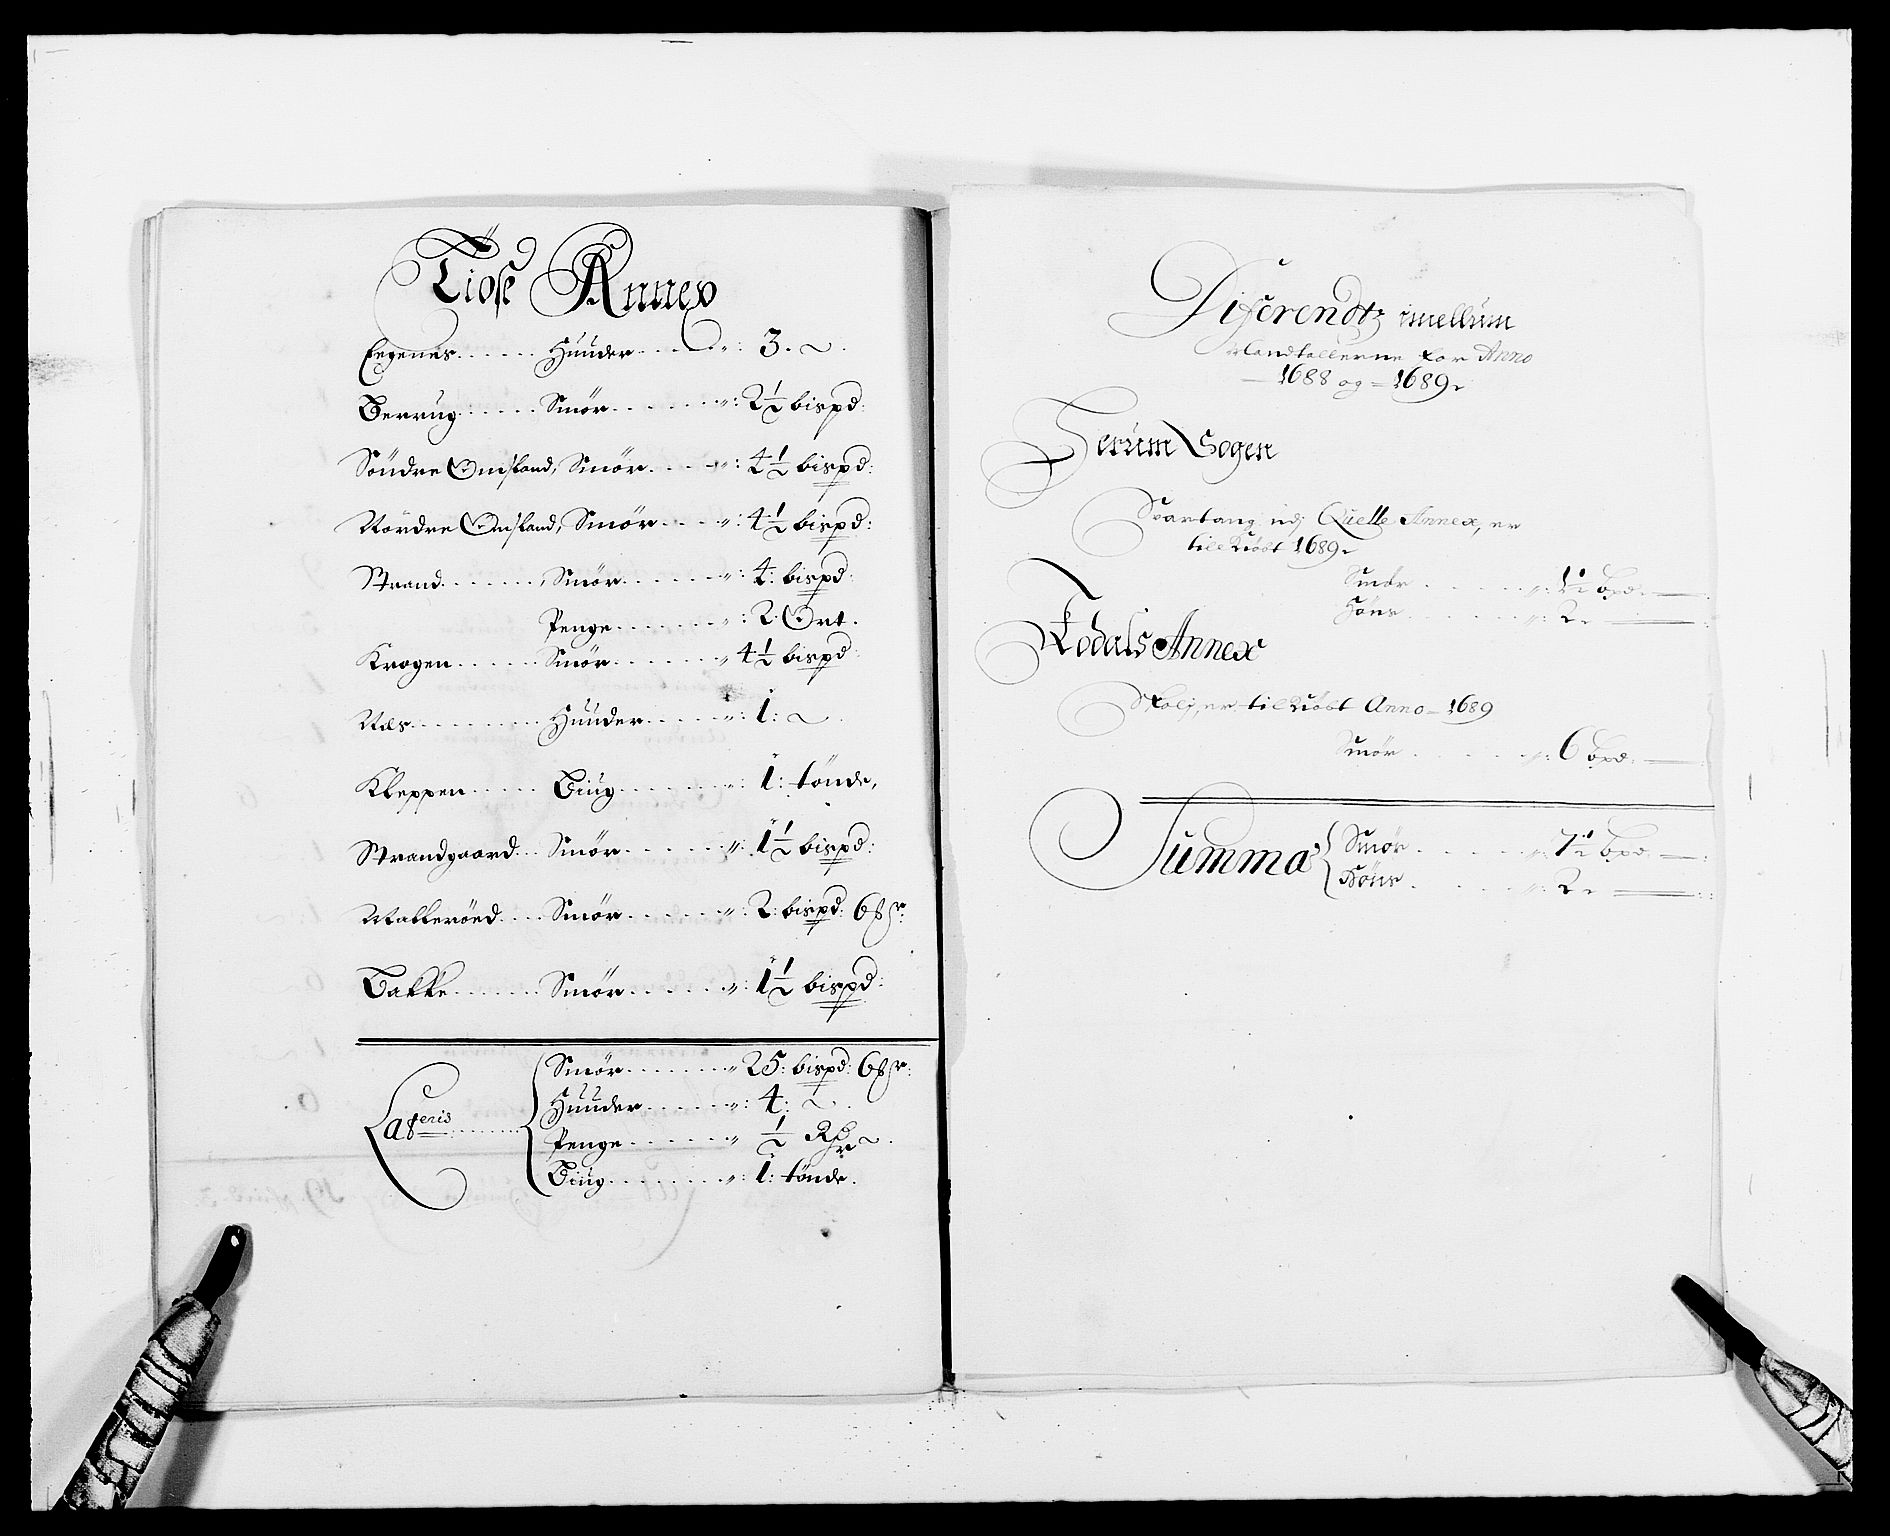 Tiøse Annex
Eegenes ...... Huuder ...... 3. ~
Berrug ...... Smör ...... 2½ bispd:
Söndre Omsland, Smör .... 4½ bispd:
Nördre Omsland, Smör .... 4½ bispd:
Strand ...... Smör ...... 4: bispd:
Penge ...... 2 Ort.
Krogen ...... Smör ...... 4½ bispd
Næs ...... Huuder ...... 1: ~
Kleppen ..... Biug ...... 1: tönde,
Strandgaard .. Smör ...... 1½ bispd:
Malleröed .... Smör ...... 2: bispd: 6
Bakke ...... Smör ...... 1½ bispd:
Lateris
Smör ...... 25: bispd: 6
Huuder ...... 4: ~
Penge ...... ½ Rdr ~
Biug ...... 1: tönde.
Diferendtz imellum
Mandtallerne for Anno
1688 og 1689
Serum Sogen
Svartang udj Quelle Annex, er
till Kiöbt 1689
Smör ...... 1½ bpd.
Höns ...... 2
Kodals Annex
Skolj, er til Kiöbt Anno 1689
Smör ...... 6 bpd.
Summa
Smör ...... 7½ bpd.
Höns ...... 2